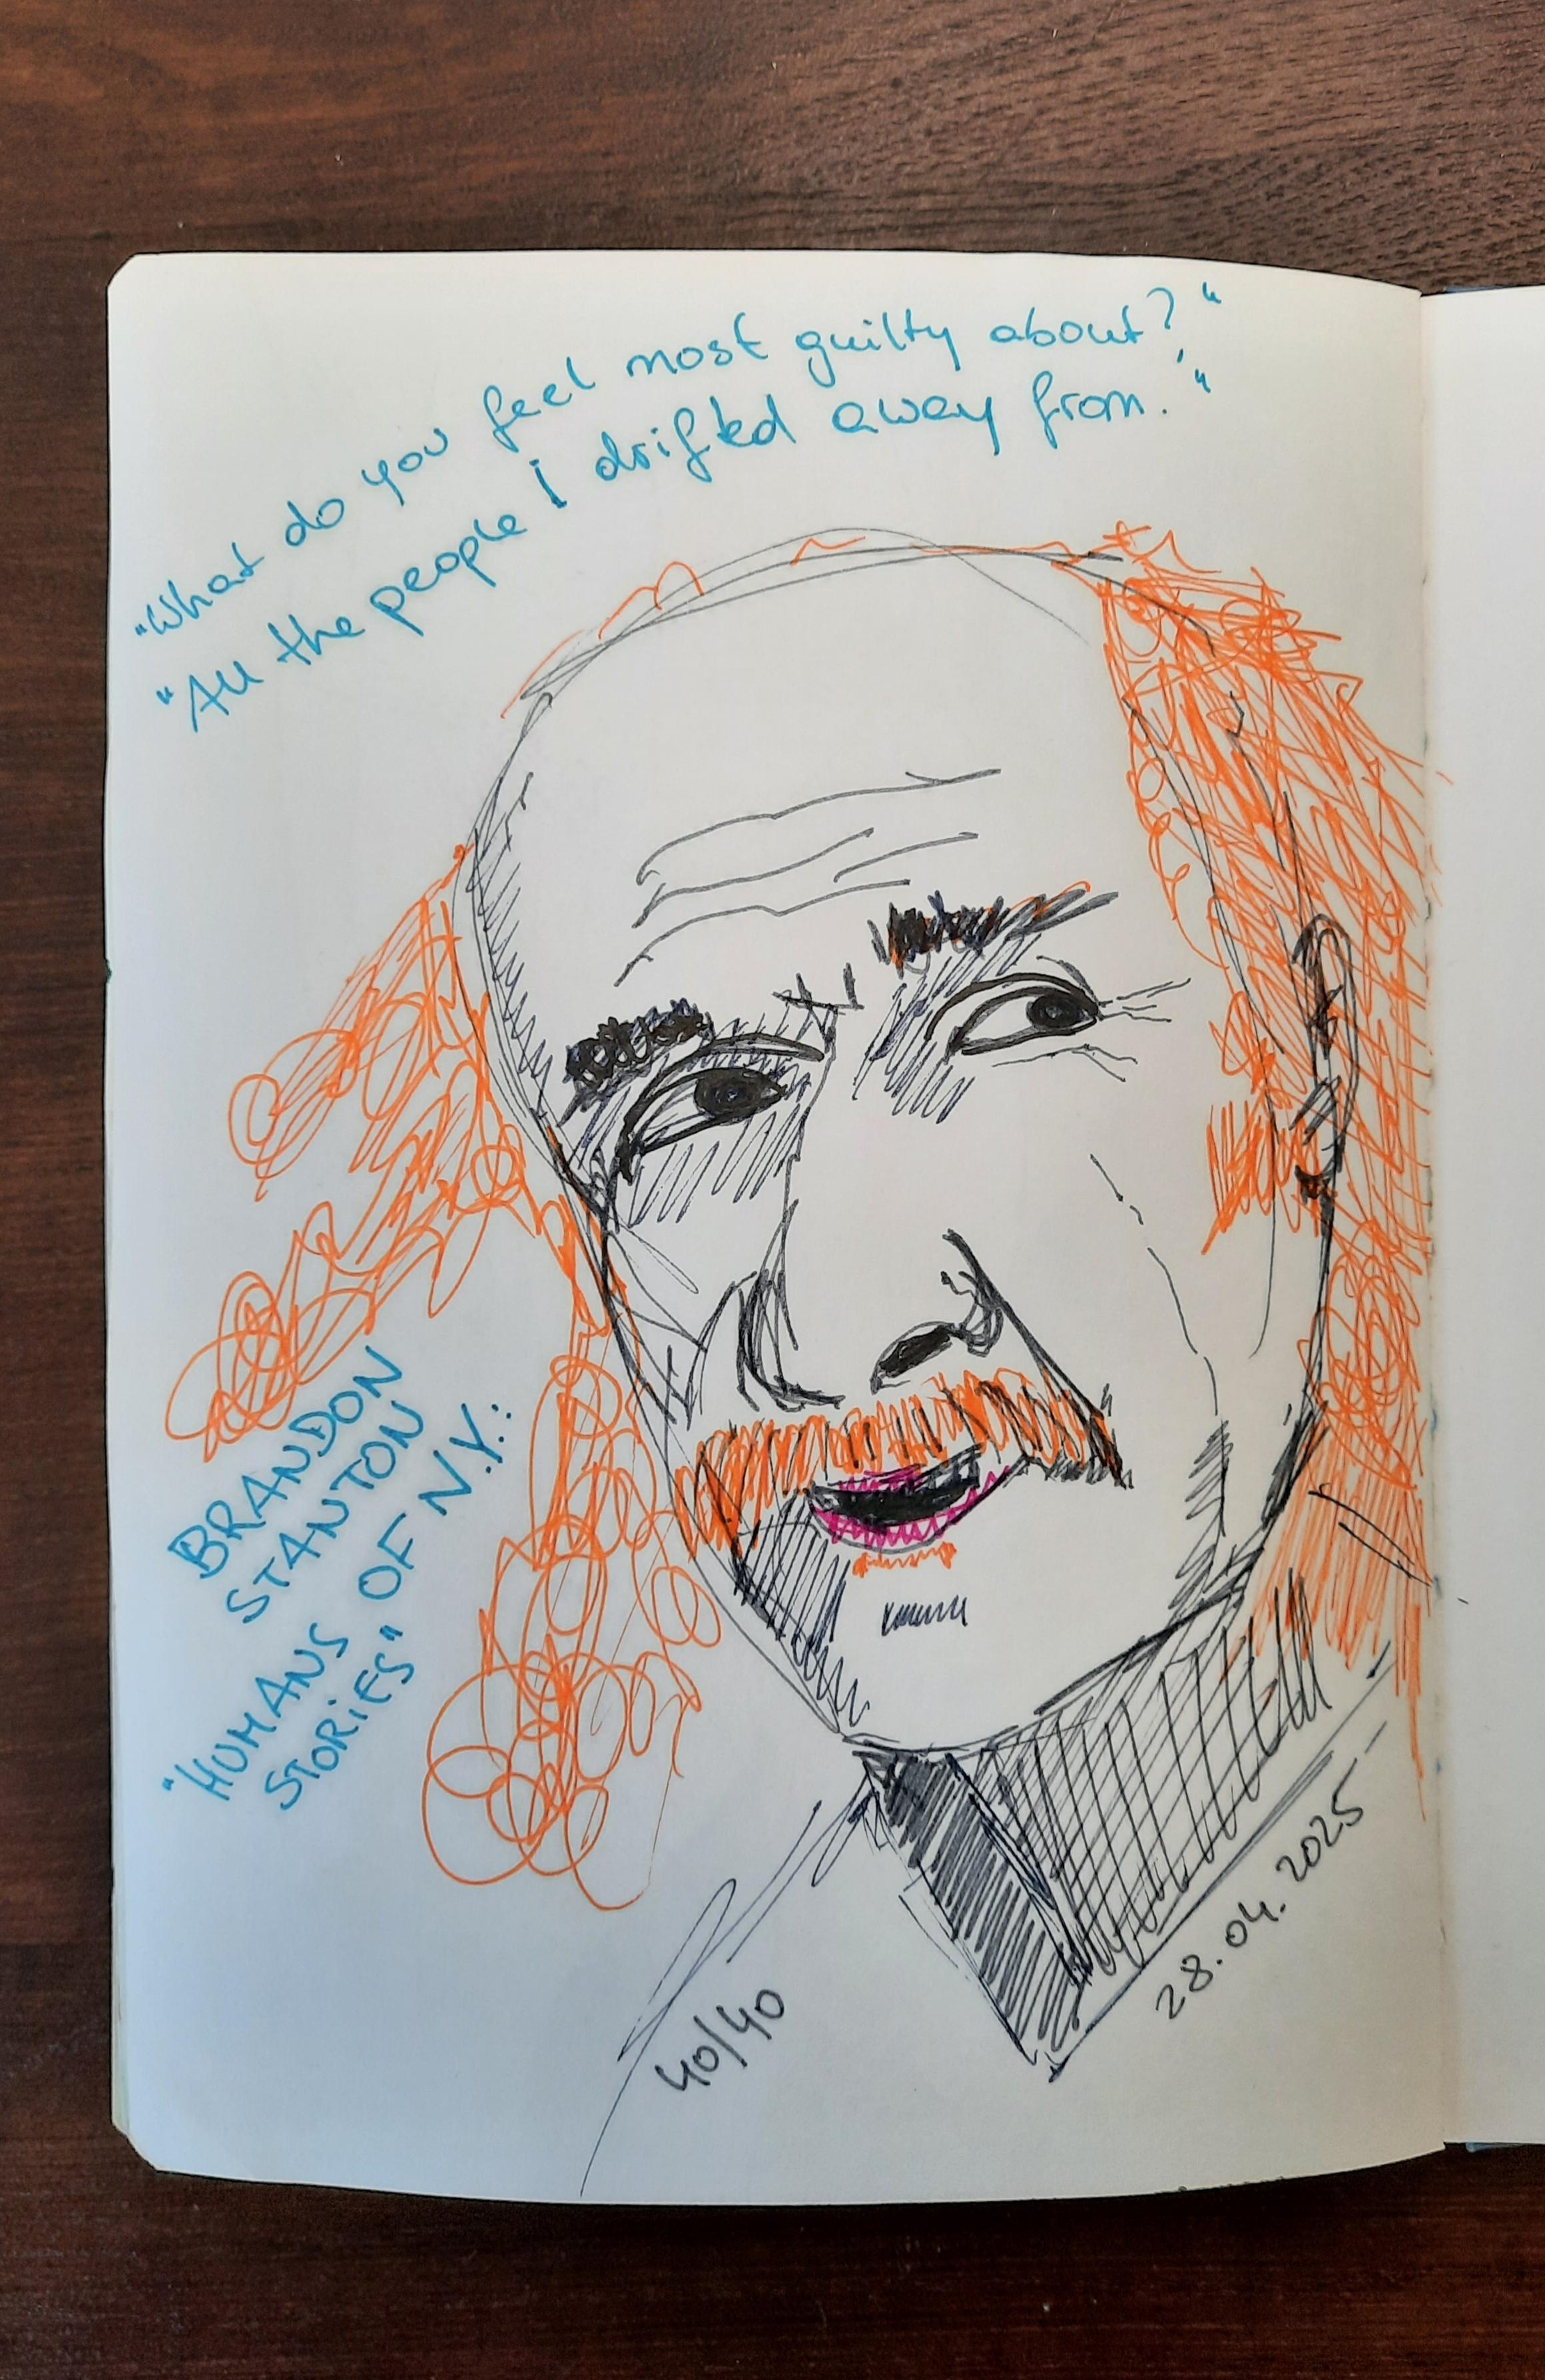 "What do you feel most guilty about?"
"All the people I drifted away from."
BRANDON
STANTON
"HUMANS OF N.Y.:
STORIES"
40/40
28.04.2025